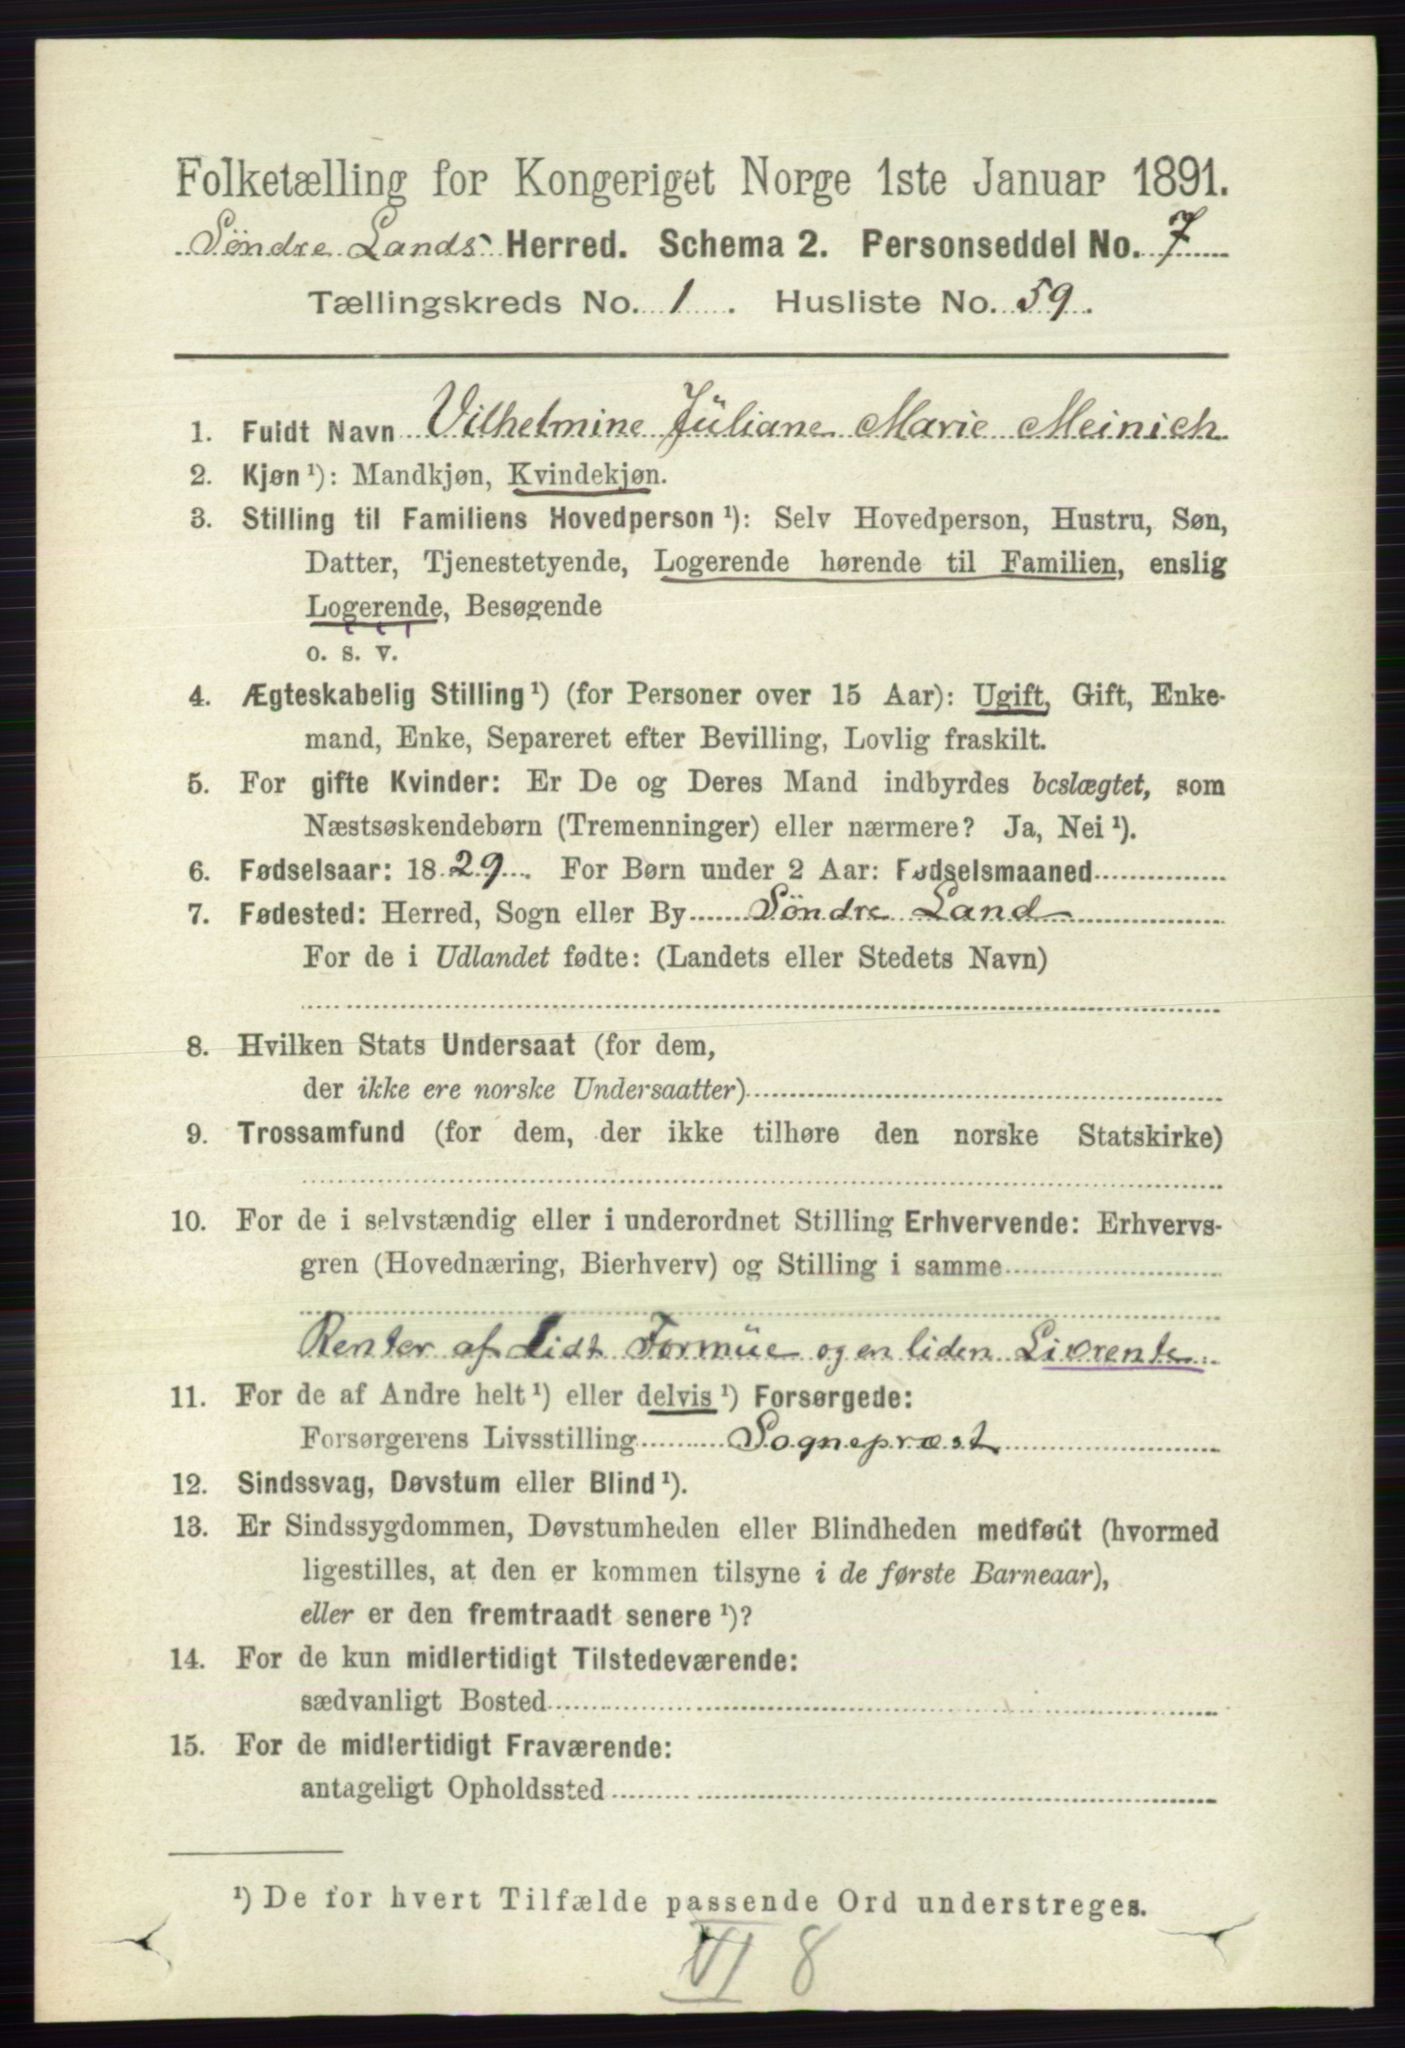 Folketælling for Kongeriget Norge 1ste Januar 1891.
Söndre Lands Herred. Schema 2. Personseddel No. 7
Tællingskreds No. 1. Husliste No. 59.
1. Fuldt Navn Vilhelmine Jüliane Marie Meinich
2. Kjøn ¹): Mandkjøn, Kvindekjøn.
3. Stilling til Familiens Hovedperson ¹): Selv Hovedperson, Hustru, Søn,
Datter, Tjenestetyende, Logerende hørende til Familien, enslig
Logerende, Besøgende
o. s. v.
4. Ægteskabelig Stilling ¹) (for Personer over 15 Aar): Ugift, Gift, Enke-
mand, Enke, Separeret efter Bevilling, Lovlig fraskilt.
5. For gifte Kvinder: Er De og Deres Mand indbyrdes beslægtet, som
Næstsøskendebørn (Tremenninger) eller nærmere? Ja, Nei ¹).
6. Fødselsaar: 1829. For Børn under 2 Aar: Fødselsmaaned
7. Fødested: Herred, Sogn eller By Söndre Land
For de i Udlandet fødte: (Landets eller Stedets Navn)
8. Hvilken Stats Undersaat (for dem,
der ikke ere norske Undersaatter)
9. Trossamfund (for dem, der ikke tilhøre den norske Statskirke)
10. For de i selvstændig eller i underordnet Stilling Erhvervende: Erhvervs-
gren (Hovednæring, Bierhverv) og Stilling i samme
Renter af Lidt Formüe og en liden Livrente
11. For de af Andre helt ¹) eller delvis ¹) Forsørgede:
Forsørgerens Livsstilling Sogneprest
12. Sindssvag, Døvstum eller Blind ¹).
13. Er Sindssygdommen, Døvstumheden eller Blindheden medfødt (hvormed
ligestilles, at den er kommen tilsyne i de første Barneaar),
eller er den fremtraadt senere ¹)?
14. For de kun midlertidigt Tilstedeværende:
sædvanligt Bosted
15. For de midlertidigt Fraværende:
antageligt Opholdssted
¹) De for hvert Tilfælde passende Ord understreges.
VI 8